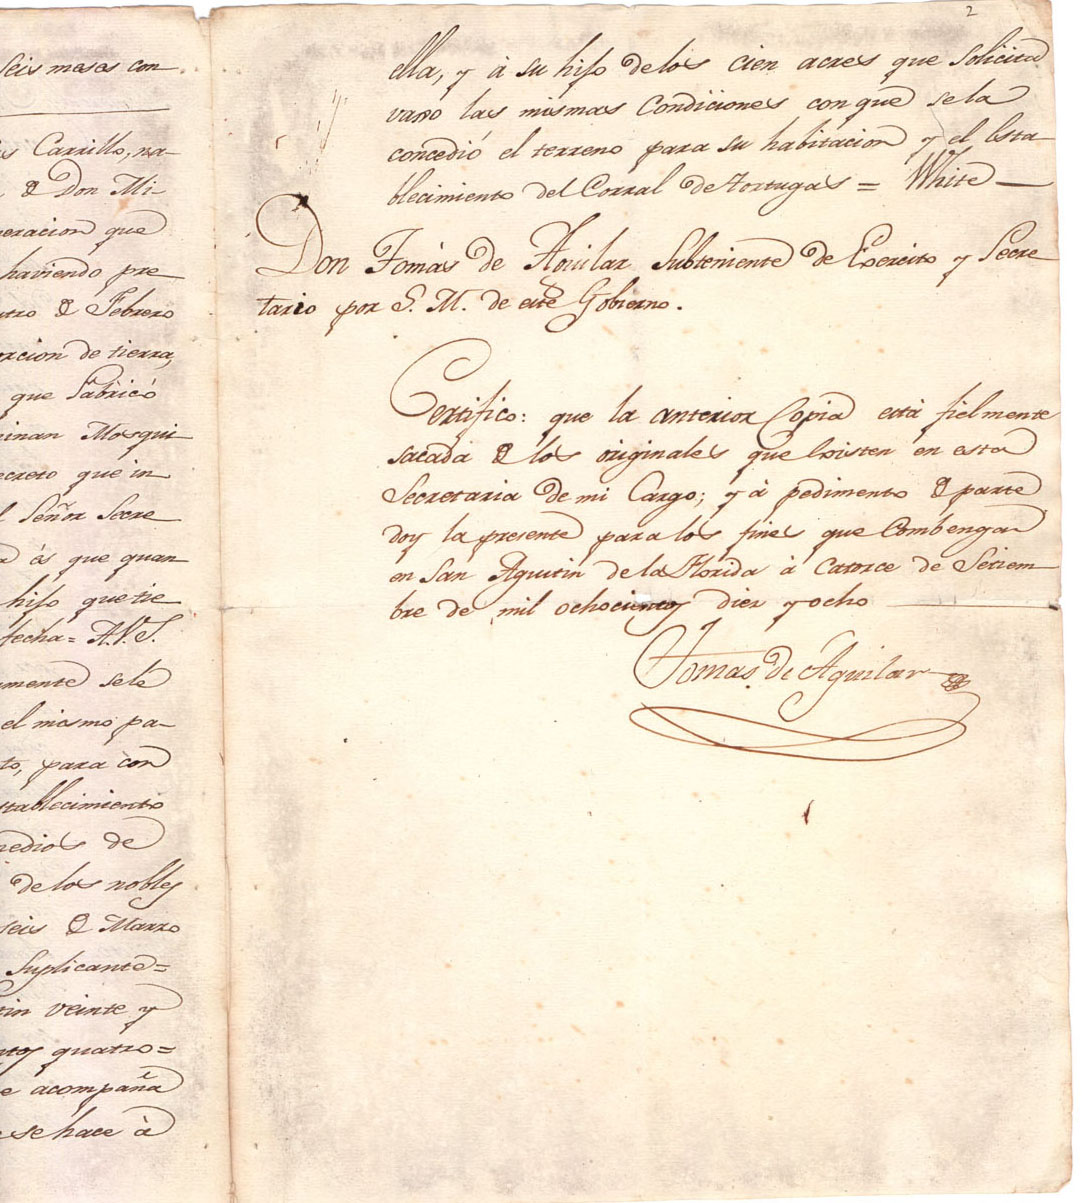 seis meses con
Carrillo, na-
Don Mi-
eracion que
haviendo pre
tro Febrero
orcion de tierra,
que Fabricó
inan Mosqui
ecreto que in
l Señor Secre
a és que quan
hijo que tie
fecha= A.V.S.
amente sele
el mismo pa-
to, para con
stablecimiento
medios de
de los nobles
seis Marzo
Suplicante=
tin veinte y
quatro=
e acompaña
se hace à
2
ella, y à su hijo delos cien acres que Solicita
vajo las mismas Condiciones con que sela
concedió el terreno para su habitacion y el Esta-
blecimiento del Corral de Tortugas = White
Don Tomás de Aguilar Subteniente de Exército y Secre
tario por S. M. de este Gobierno.
Certifico: que la anterior Copia está fielmente
sacada los originales que Existen en esta
Secretaria de mi Cargo; y à pedimento parte
doy la presente para los fines que Combengan
en San Agustin dela Florida à Catorce de Setiem-
bre de mil ochocientos diez y ocho
Tomas de Aguilar